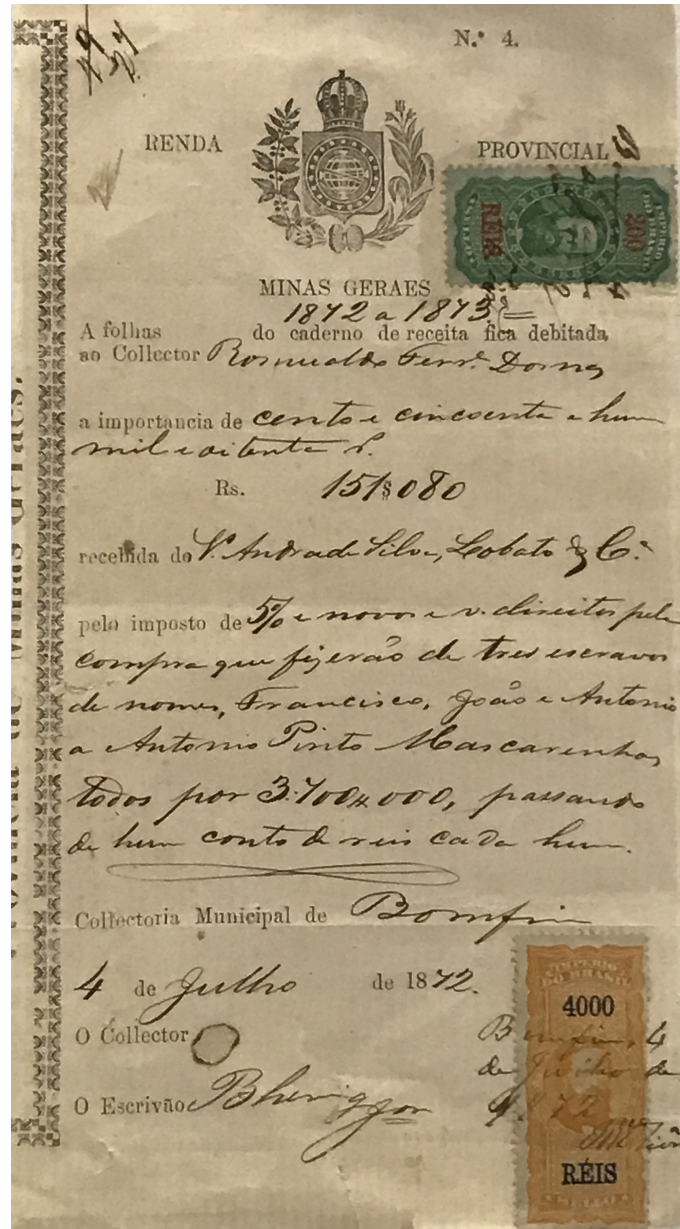 N.º 4.
RENDA PROVINCIAL
IMPERIO DO BRASIL
200
REIS
MINAS GERAES
1872 a 1873
A folhas do caderno de receita fica debitada
ao Collector Romualdo Ferr.ª Dornas
a importancia de cento e cincoenta e hum
mil e oitenta r.
Rs. 151$080
recebida de V. Andrade Silva, Lobato & C.ª
pelo imposto de 5% e novos e v. direitos pela
compra que fizerão de tres escravos
de nomes, Francisco, João e Antonio
a Antonio Pinto Mascarenhas
todos por 3:700$000, passando
de hum conto de reis cada hum.
Collectoria Municipal de Bomfim
4 de Julho de 1872.
O Collector
O Escrivão
IMPERIO
DO BRASIL
4000
Bomfim, 4
de Julho de
1872
RÉIS